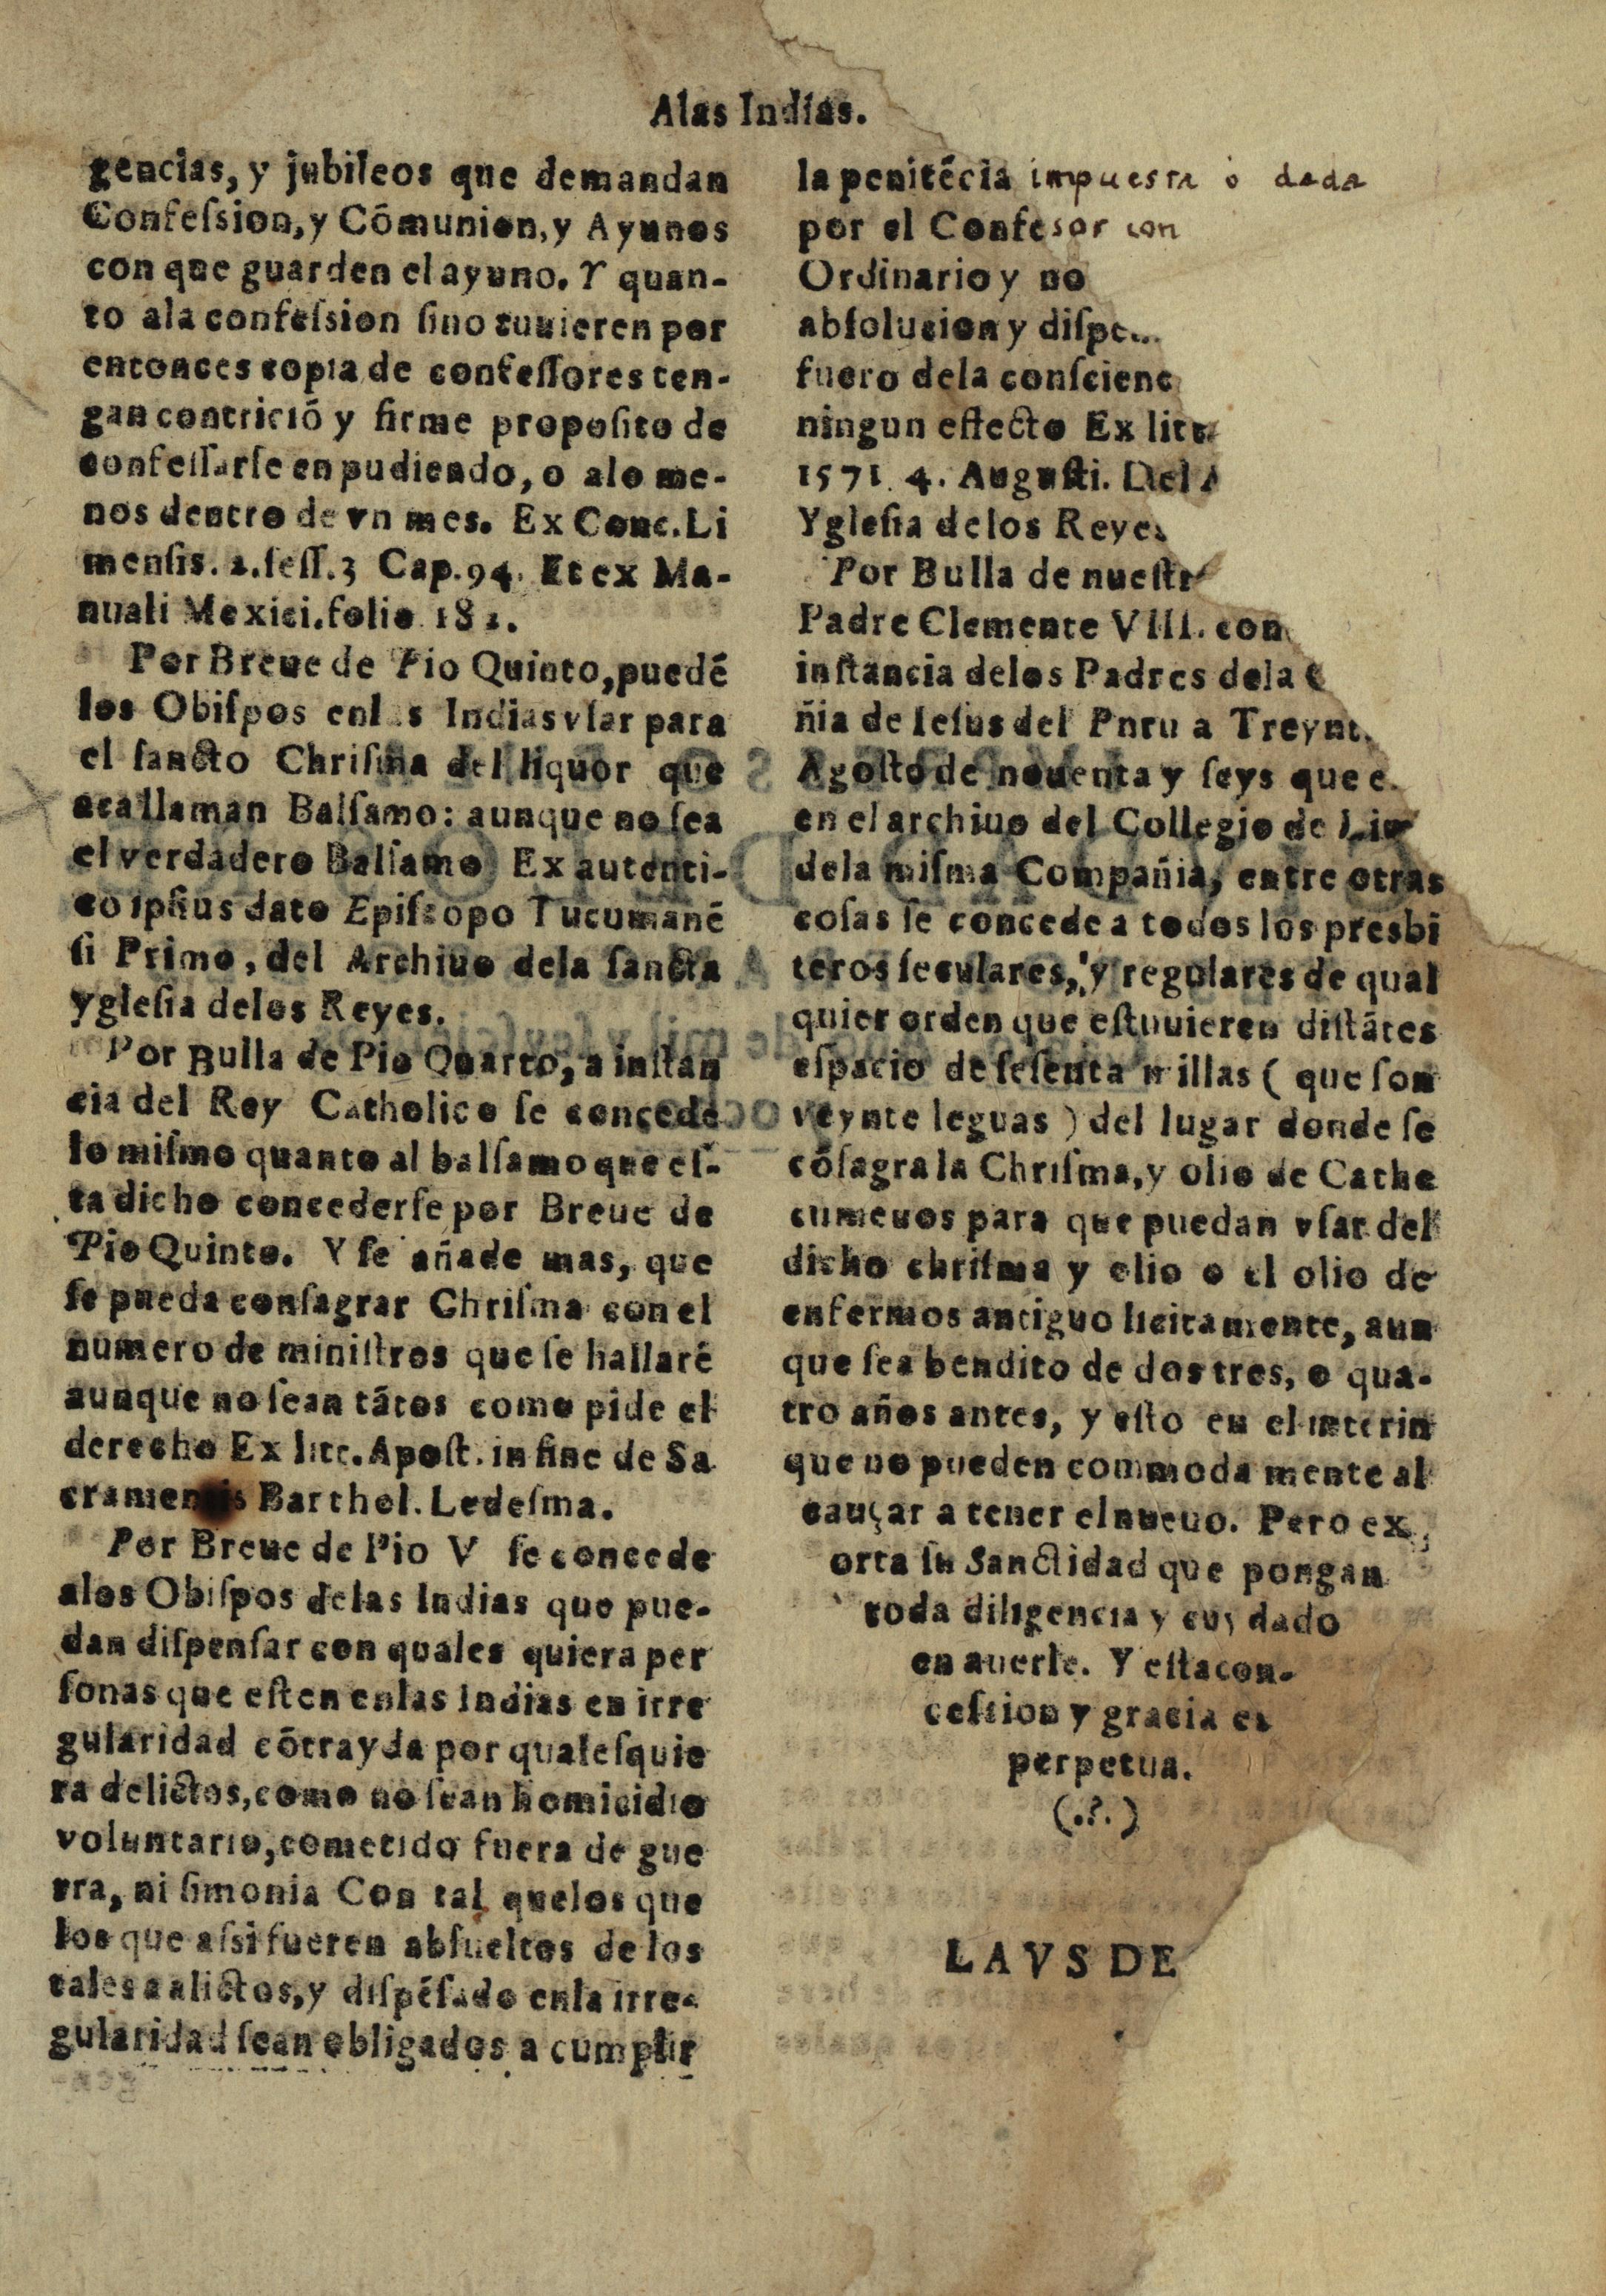 Alas Indias.
gencias, y jubileos que demandan
Confeſsion, y Cōmunion, y Ayunos
con que guarden el ayuno. Y quan-
to ala confeſsion ſino tuuieren por
entonces copia de confeſſores ten-
gan contrició y firme propoſito de
confeſſarſe en pudiendo, o alo me-
nos dentro de vn mes. Ex Conc. Li
menſis. 2. ſeſſ. 3 Cap. 94. Et ex Ma-
nuali Mexici. folio 182.
Por Breue de Pio Quinto, puedé
los Obiſpos enlas Indias vſar para
el ſancto Chriſma del liquor que
aca llaman Balſamo: aunque no ſea
el verdadero Balſamo Ex autenti-
co ipſius dato Epiſcopo Tucumané
ſi Primo, del Archiuo dela ſancta
yglesia delos Reyes.
Por Bulla de Pio Quarto, a inſtan
cia del Rey Catholico ſe concede
lo miſmo quanto al balſamo que eſ-
ta dicho concederſe por Breue de
Pio Quinto. Y ſe añade mas, que
ſe pueda conſagrar Chriſma con el
numero de miniſtros que ſe hallaré
aunque no ſean tátos como pide el
derecho Ex litt. Apoſt. in fine de Sa
cramentis Barthol. Ledeſma.
Por Breue de Pio V ſe concede
alos Obiſpos delas Indias que pue-
dan diſpenſar con quales quiera per
ſonas que eſten enlas Indias en irre
gularidad cōtrayda por qualeſquie
ra delictos, como no ſean homicidio
voluntario, cometido fuera de gue
rra, ni ſimonia Con tal quelos que
los que aſsi fueren abſueltos de los
tales aalictos, y diſpéſado enla irre-
gularidad ſean obligados a cumplir
la penitécia impuesta ó dada
por el Confesor con
Ordinario y no
abſolucion y diſpe
fuero dela conſcienc
ningun effecto Ex litt
1571. 4. Auguſti. Del A
Ygleſia delos Reyes
Por Bulla de nueſtr
Padre Clemente VIII. con
inſtancia delos Padres dela C
ñia de Ieſus del Pnru a Treynt
Agoſto de nouenta y ſeys que e
en el archiuo del Collegio de Lim
dela miſma Compañia, entre otras
coſas ſe concede a todos los presbi
teros ſeculares, y regulares de qual
quier orden que eſtuuieren diſtátes
eſpacio de ſeſenta millas ( que ſon
veynte leguas ) del lugar donde ſe
cóſagra la Chriſma, y olio de Cathe
cumeuos para que puedan vſar del
dicho chriſma y olio o el olio de
enfermos antiguo licitamente, aun
que ſea bendito de dos tres, o qua-
tro años antes, y eſto en el interin
que no pueden commoda mente al
cauçar a tener el nueuo. Pero ex
orta ſu Sanctidad que pongan
toda diligencia y cuydado
en auerle. Y eſta con-
ceſsion y gracia es
perpetua.
(.?.)
LAVS DE